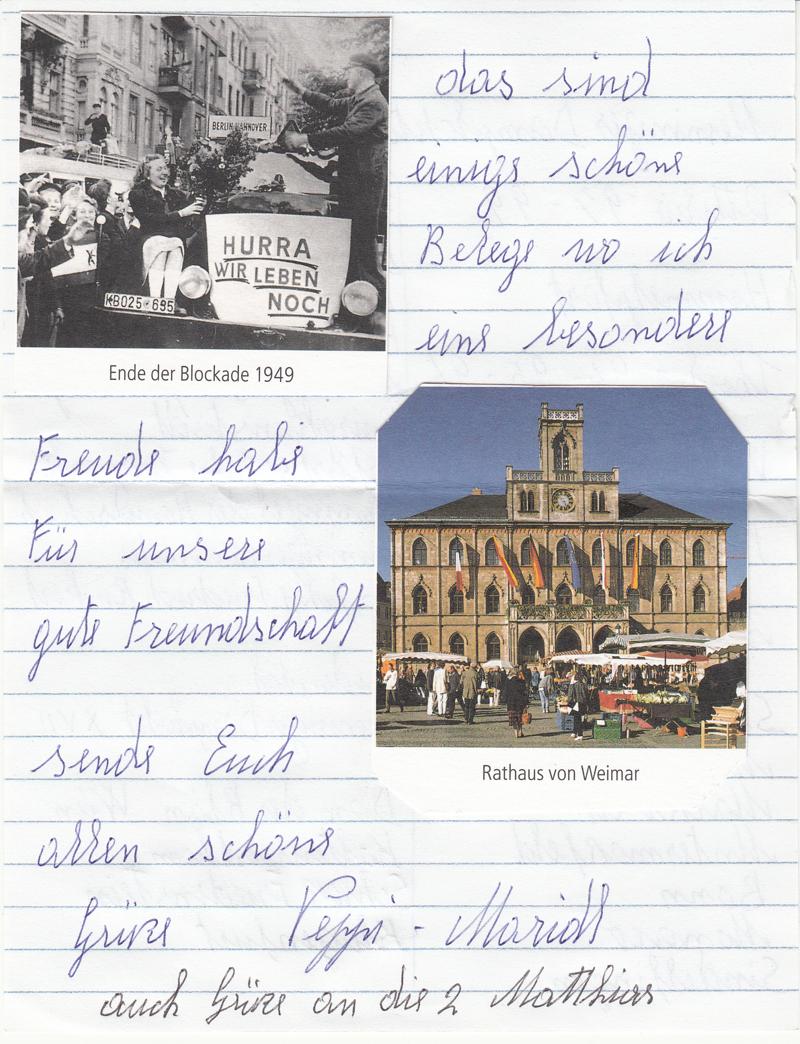 das sind
einige schöne
Belege wo ich
eine besondere
BERLIN-HANNOVER
HURRA
WIR LEBEN
NOCH
KB025-695
Ende der Blockade 1949
Freude habe
Für unsere
gute Freundschaft
Rathaus von Weimar
sende Euch
allen schöne
Grüße Peppi - Maridl
auch Grüße an die 2 Matthias